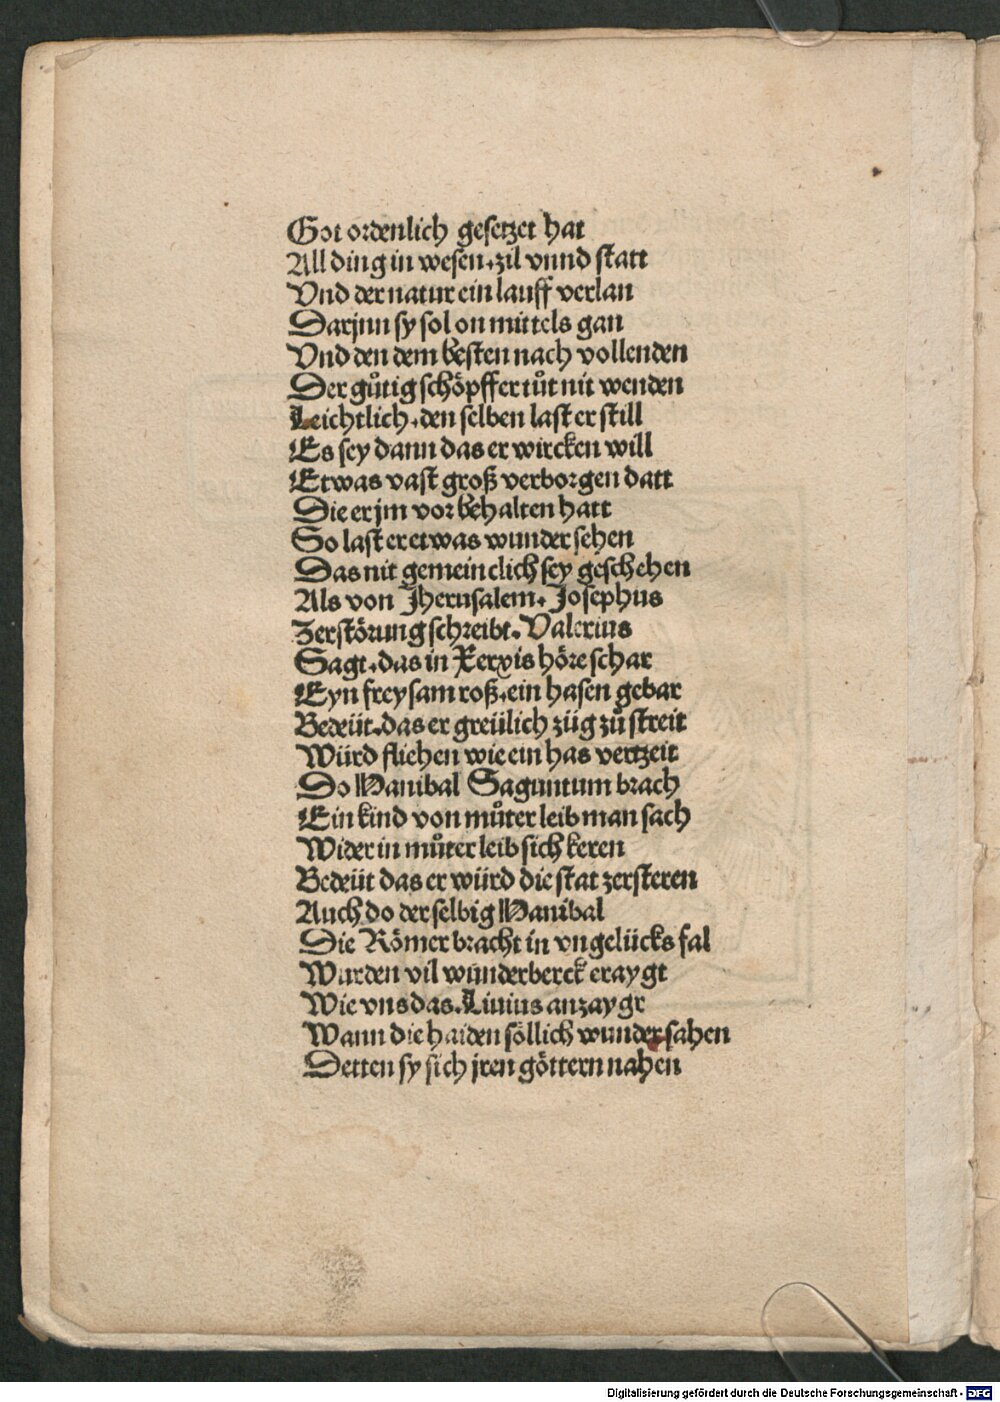 Got ordenlich gesetzet hat
All ding in wesen, zil vnnd statt
Vnd der natur ein lauff verlan
Darjnn sy sol on mittels gan
Vnd den dem besten nach vollenden
Der gůtig schöpffer tůt nit wenden
Leichtlich, den selben last er still
Es sey dann das er wircken will
Etwas vast groß verborgen datt
Die er jm vor behalten hatt
So last er etwas wunder sehen
Das nit gemeinclich sey geschehen
Als von Jherusalem, Josephus
Zerstörung schreibt. Valerius
Sagt, das in Xerxis höre schar
Eyn freysam roß, ein hasen gebar
Bedeüt, das er greülich züg zů streit
Würd fliehen wie ein has vertzeit
Do Hanibal Saguntum brach
Ein kind von můter leib man sach
Wider in můter leib sich keren
Bedeüt das er würd die stat zersteren
Auch do der selbig Hanibal
Die Römer bracht in vngelücks fal
Wurden vil wunderberck eraygt
Wie vns das. Liuius anzaygt
Wann die haiden söllich wunder sahen
Detten sy sich jren göttern nahen
Digitalisierung gefördert durch die Deutsche Forschungsgemeinschaft - DFG